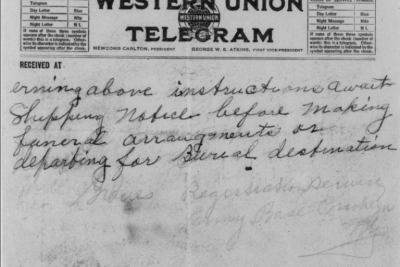 Telegram
Day Letter Blue
Night Message Nite
Night Letter N L
If none of these three symbols
appears after the check (number of
words) this is a telegram. Other-
wise its character is indicated by the
symbol appearing after the check.
WESTERN UNION
WESTERN UNION
TELEGRAM
NEWCOMB CARLTON, PRESIDENT GEORGE W. E. ATKINS, FIRST VICE-PRESIDENT
Telegram
Day Letter Blue
Night Message Nite
Night Letter N L
If none of these three symbols
appears after the check (number of
words) this is a telegram. Other-
wise its character is indicated by the
symbol appearing after the check.
RECEIVED AT
erning above instructions await
Shipping Notice before making
funeral arrangments or
departing for Burial destination
Graves Registration Service
Army Base Brooklyn
NY